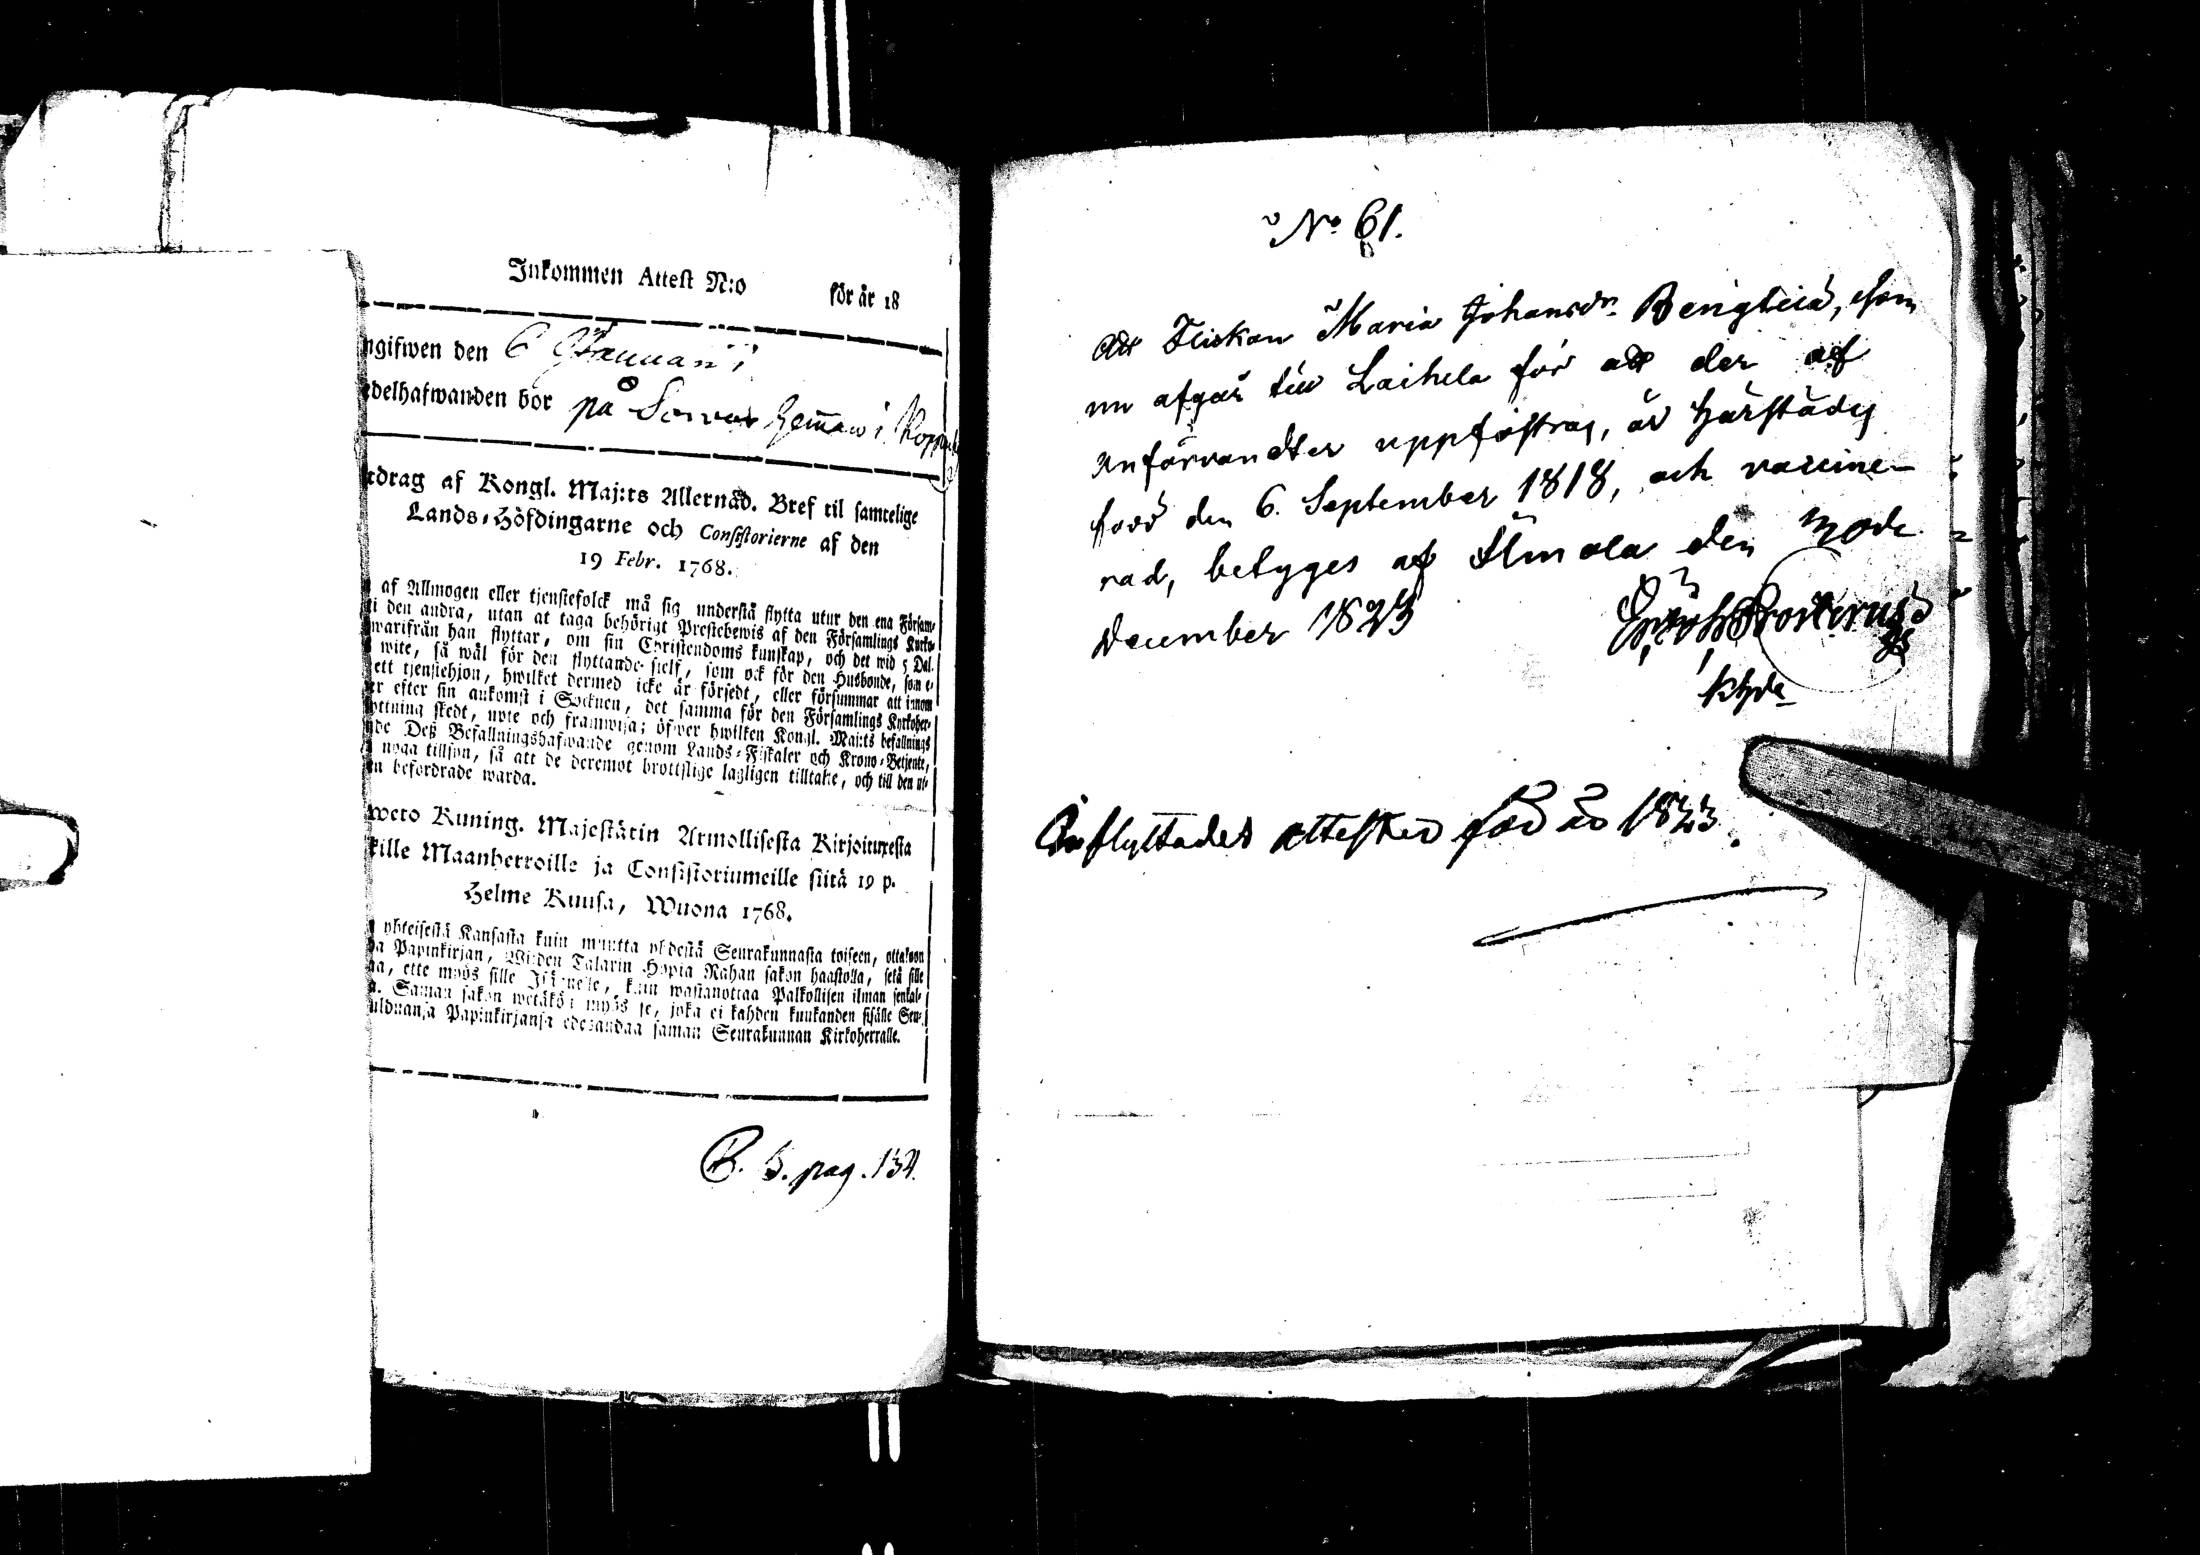 Inkommen Attest N:o för år 18
ngifwen den 6 Januarii
edelhafwanden bor på Hemman i
tdrag af Kongl. Maj:ts Allernåd. Bref til samtelige
Lands-Höfdingarne och Consistorierne af den
19 Febr. 1768.
af Allmogen eller tjenstefolck må sig understå flytta utur den ena Försam-
i den andra, utan at taga behörigt Prestebewis af den Församlings Kyrko-
warifrån han flyttar, om sin Christendoms kunskap, och det wid 5 Dal.
wite, så wäl för den flyttande sielf, som ock för den Husbonde, som e-
ett tjenstehjon, hwilket dermed icke är försedt, eller försummar att innom
er efter sin ankomst i Socknen, det samma för den Församlings Kyrkoher-
ottning skedt, upte och framwisa; öfwer hwilken Kongl. Maj:ts befallnings
de Deß Befallningshafwande genom Lands-Fiskaler och Krono-Betjente,
noga tillsyn, så att de deremot brottslige lagligen tilltalte, och till den
n befordrade warda.
weto Kuning. Majestätin Armollisesta Kirjoituxesta
kille Maanherroille ja Consistoriumeille siitä 19 p.
Helme Kuusa, Wuona 1768.
yhteisestä Kansasta kuin muutta yhdestä Seurakunnasta toiseen, ottakoon
Papinkirjan, Wijden Talarin Hopia Rahan sakon haastolla, setä sille
aa, ette myös sille Isännelle, kuin wastanottaa Palkollisen ilman senkal-
a. Saman sakon wetäkön myös se, joka ei kahden kuukanden sisälle Seu-
ulduansa Papinkirjansa edesandaa saman Seurakunnan Kirkoherralle.
B. 5. pag. 134.
No 61.
Att Flickan Maria Johansdr. Bengtila, som
nu afgår till Laihela för att der af
anförvandter uppfostras, är härstädes
född den 6. September 1818, och vaccine-
rad, betyges af Ilmola den
December 1823
Khde
Inflyttades attester för år 1823.